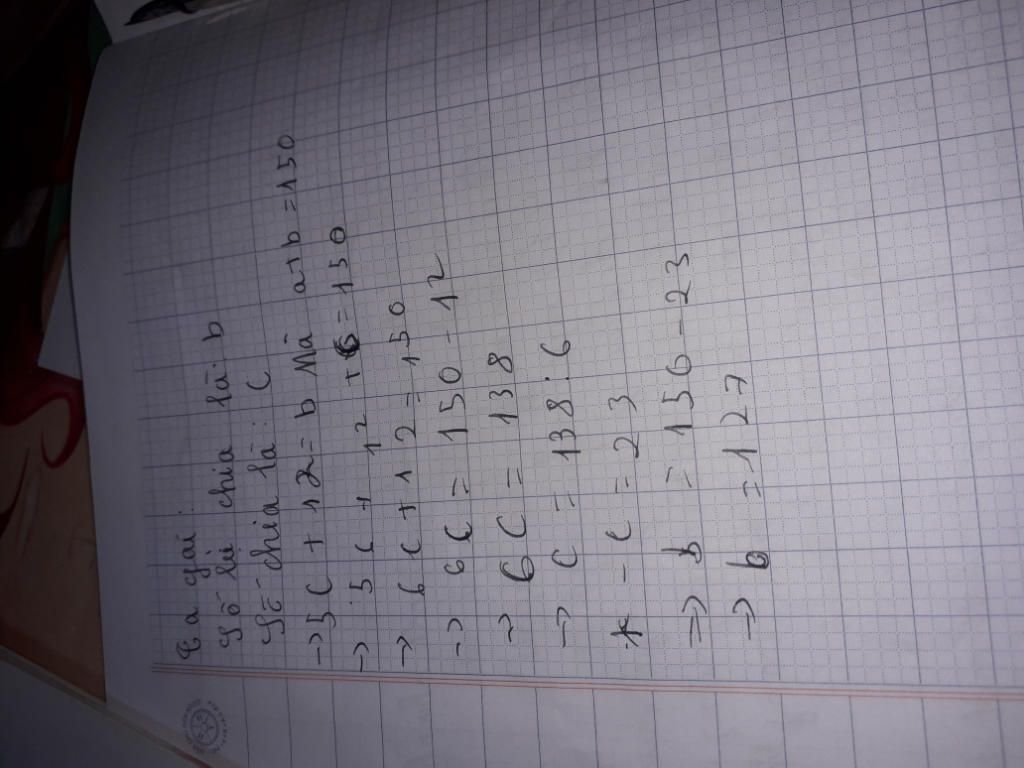 Ta gọi:
Số bị chia là: b
Số chia là: C
→ 5C + 12 = b Mà a+b = 150
→ 5C + 12 + C = 150
→ 6C + 12 = 150
→ 6C = 150 - 12
→ 6C = 138
→ C = 138 : 6
* - C = 23
=> b = 150 - 23
→ b = 127